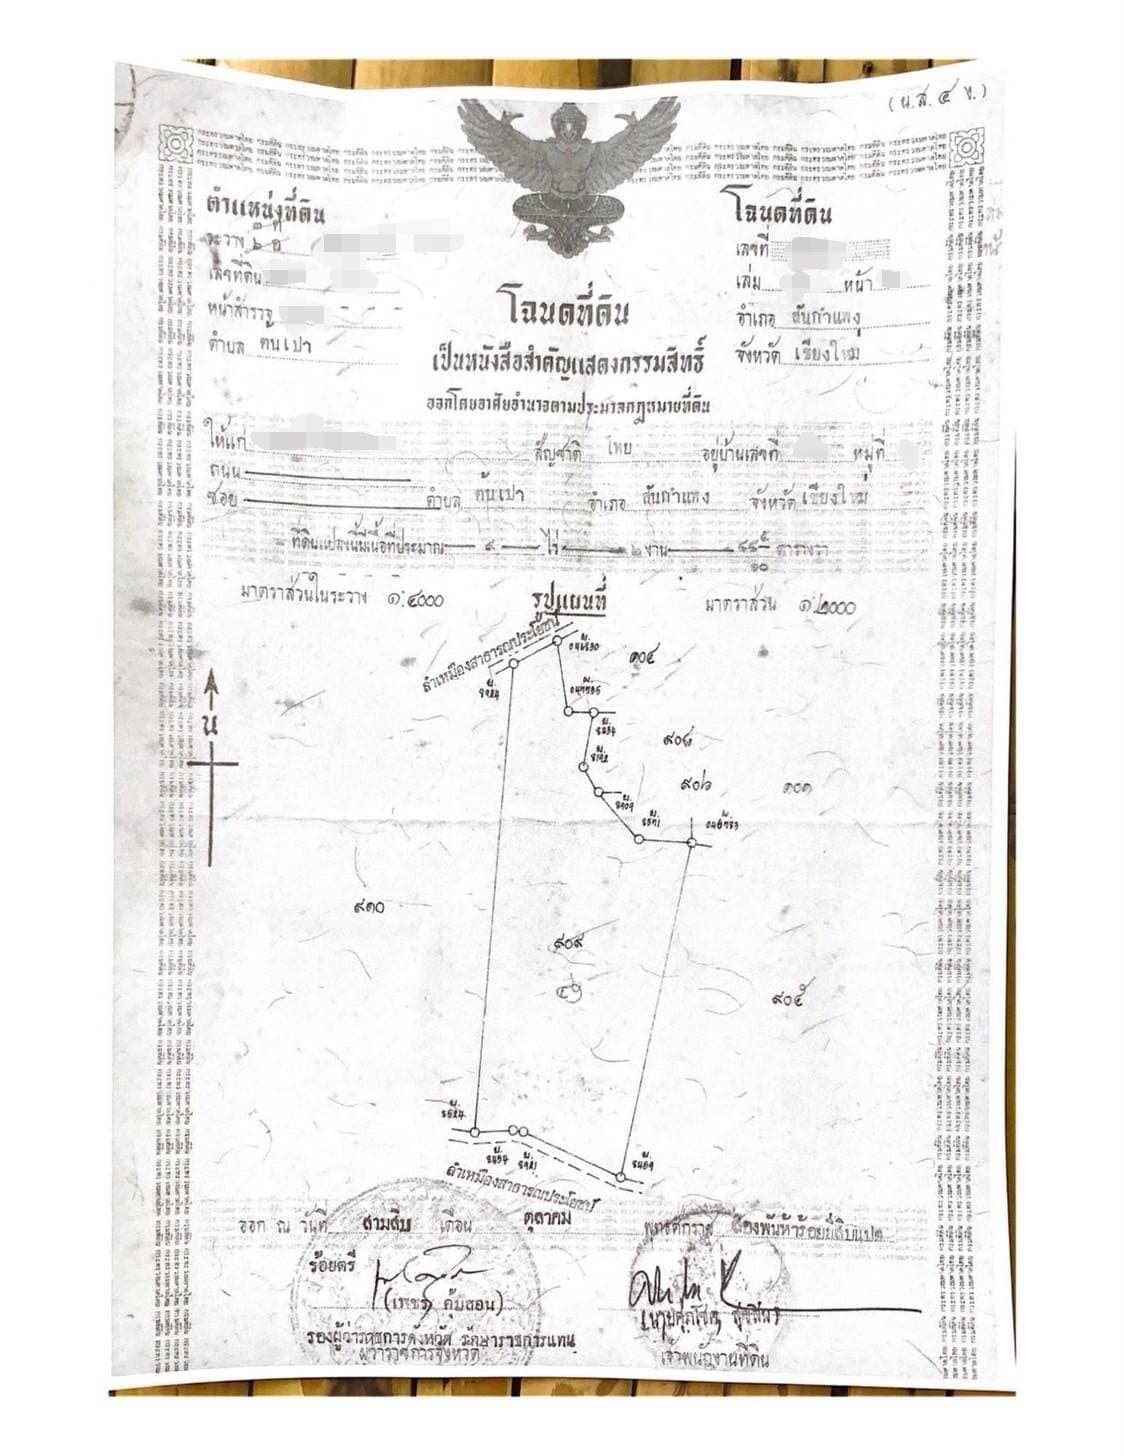 (น.ส.๔ ง.)
ตำแหน่งที่ดิน
ระวาง
เลขที่ดิน
หน้าสำรวจ
ตำบล ต้นเปา
โฉนดที่ดิน
เลขที่
เล่ม หน้า
อำเภอ สันกำแพง
จังหวัด เชียงใหม่
โฉนดที่ดิน
เป็นหนังสือสำคัญแสดงกรรมสิทธิ์
ออกโดยอาศัยอำนาจตามประมวลกฎหมายที่ดิน
ให้แก่ สัญชาติ ไทย อยู่บ้านเลขที่ หมู่ที่
ถนน
ซอย ตำบล ต้นเปา อำเภอ สันกำแพง จังหวัด เชียงใหม่
ที่ดินแปลงนี้มีเนื้อที่ประมาณ ๙ ไร่ ๒ งาน ตารางวา
มาตราส่วนในระวาง ๑:๔๐๐๐ รูปแผนที่ มาตราส่วน ๑:๒๐๐๐
ลำเหมืองสาธารณประโยชน์
น
๙๑๐
๙๐๙
๙๐๕
ลำเหมืองสาธารณประโยชน์
ออก ณ วันที่ สามสิบ เดือน ตุลาคม พุทธศักราช สองพันห้าร้อยยี่สิบแปด
ร้อยตรี
รองผู้ว่าราชการจังหวัด รักษาราชการแทน
ผู้ว่าราชการจังหวัด
เจ้าพนักงานที่ดิน